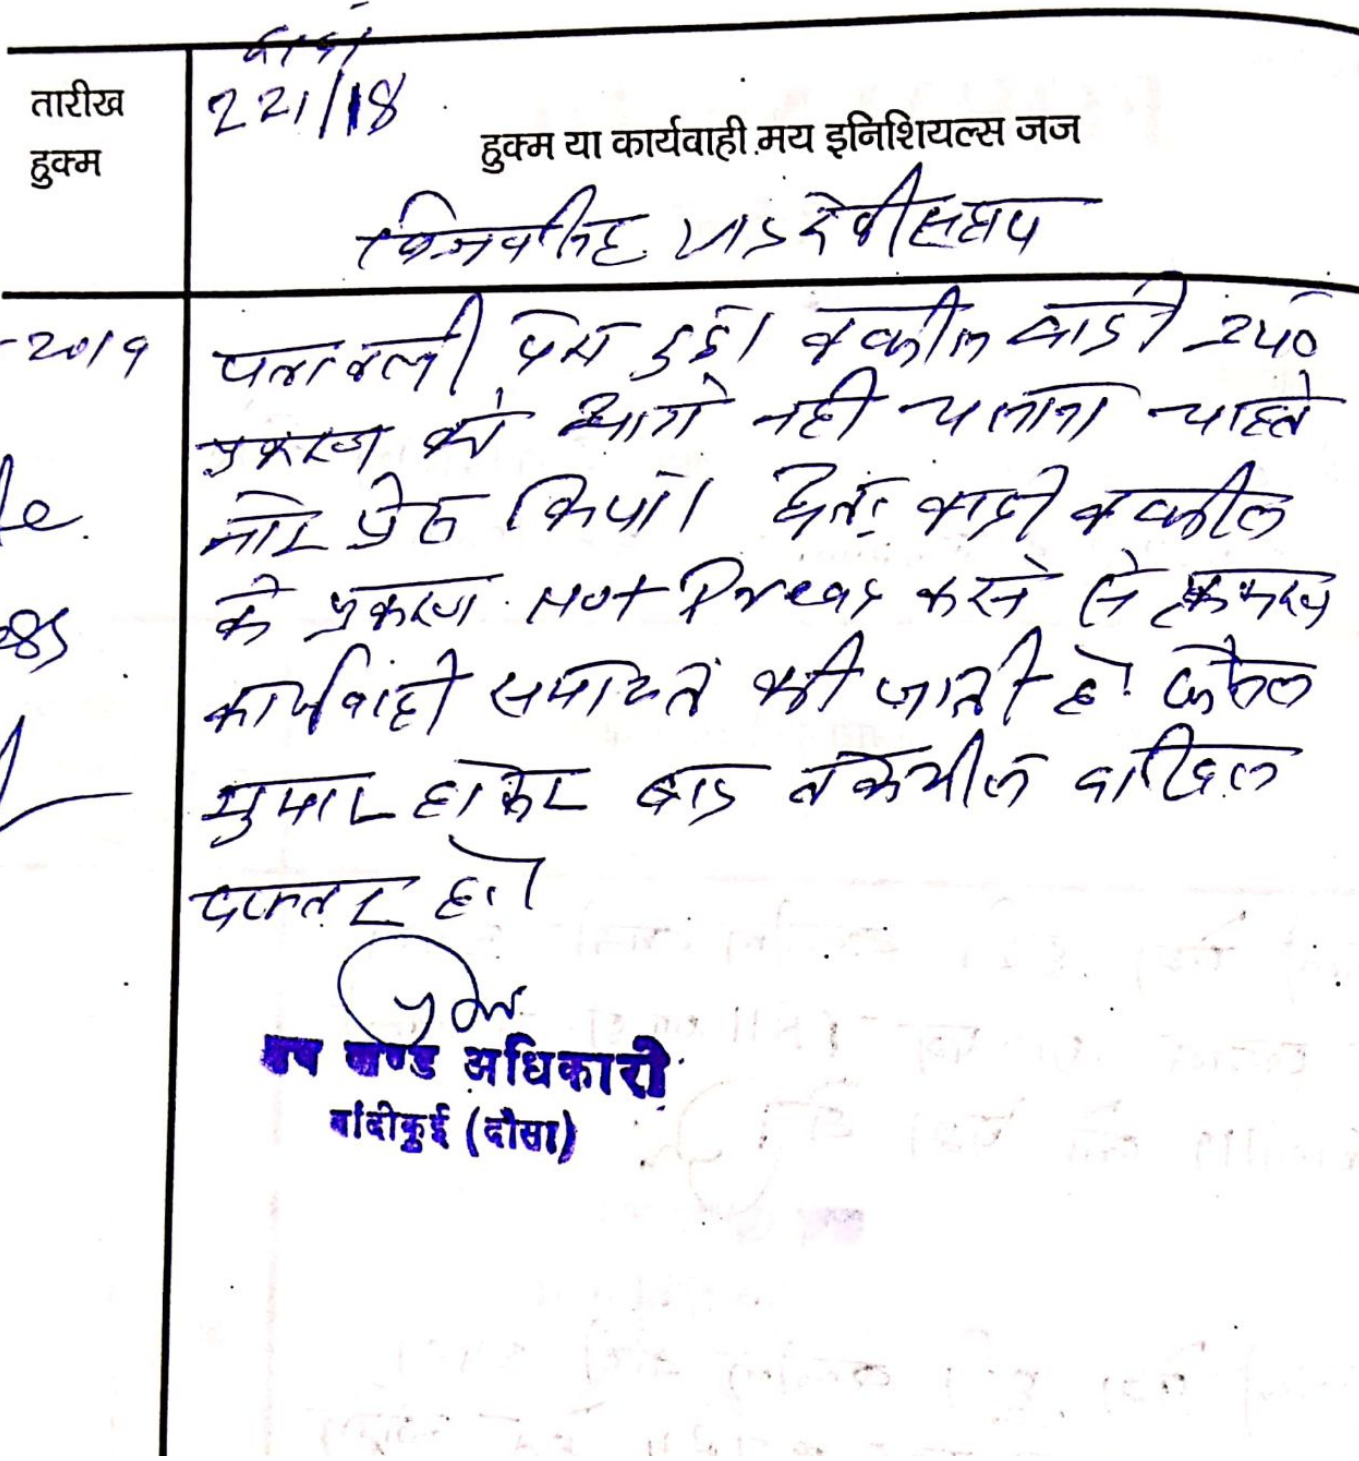 दावा
221/18
तारीख
हुक्म
हुक्म या कार्यवाही मय इनिशियल्स जज
विजयसिंह देवीसहाय
-2019
पत्रावली पेश हुई। वकील वादी उप०
प्रकरण को आगे नहीं चलाना चाहते
नोट प्रेस किया। अतः वादी वकील
के प्रकरण Not Press करने से प्रकरण
कार्यवाही समाप्त की जाती है। फैसल
शुमार होकर बाद तकमील दाखिल
दफ्तर हो।
उप खण्ड अधिकारी
बांदीकुई (दौसा)